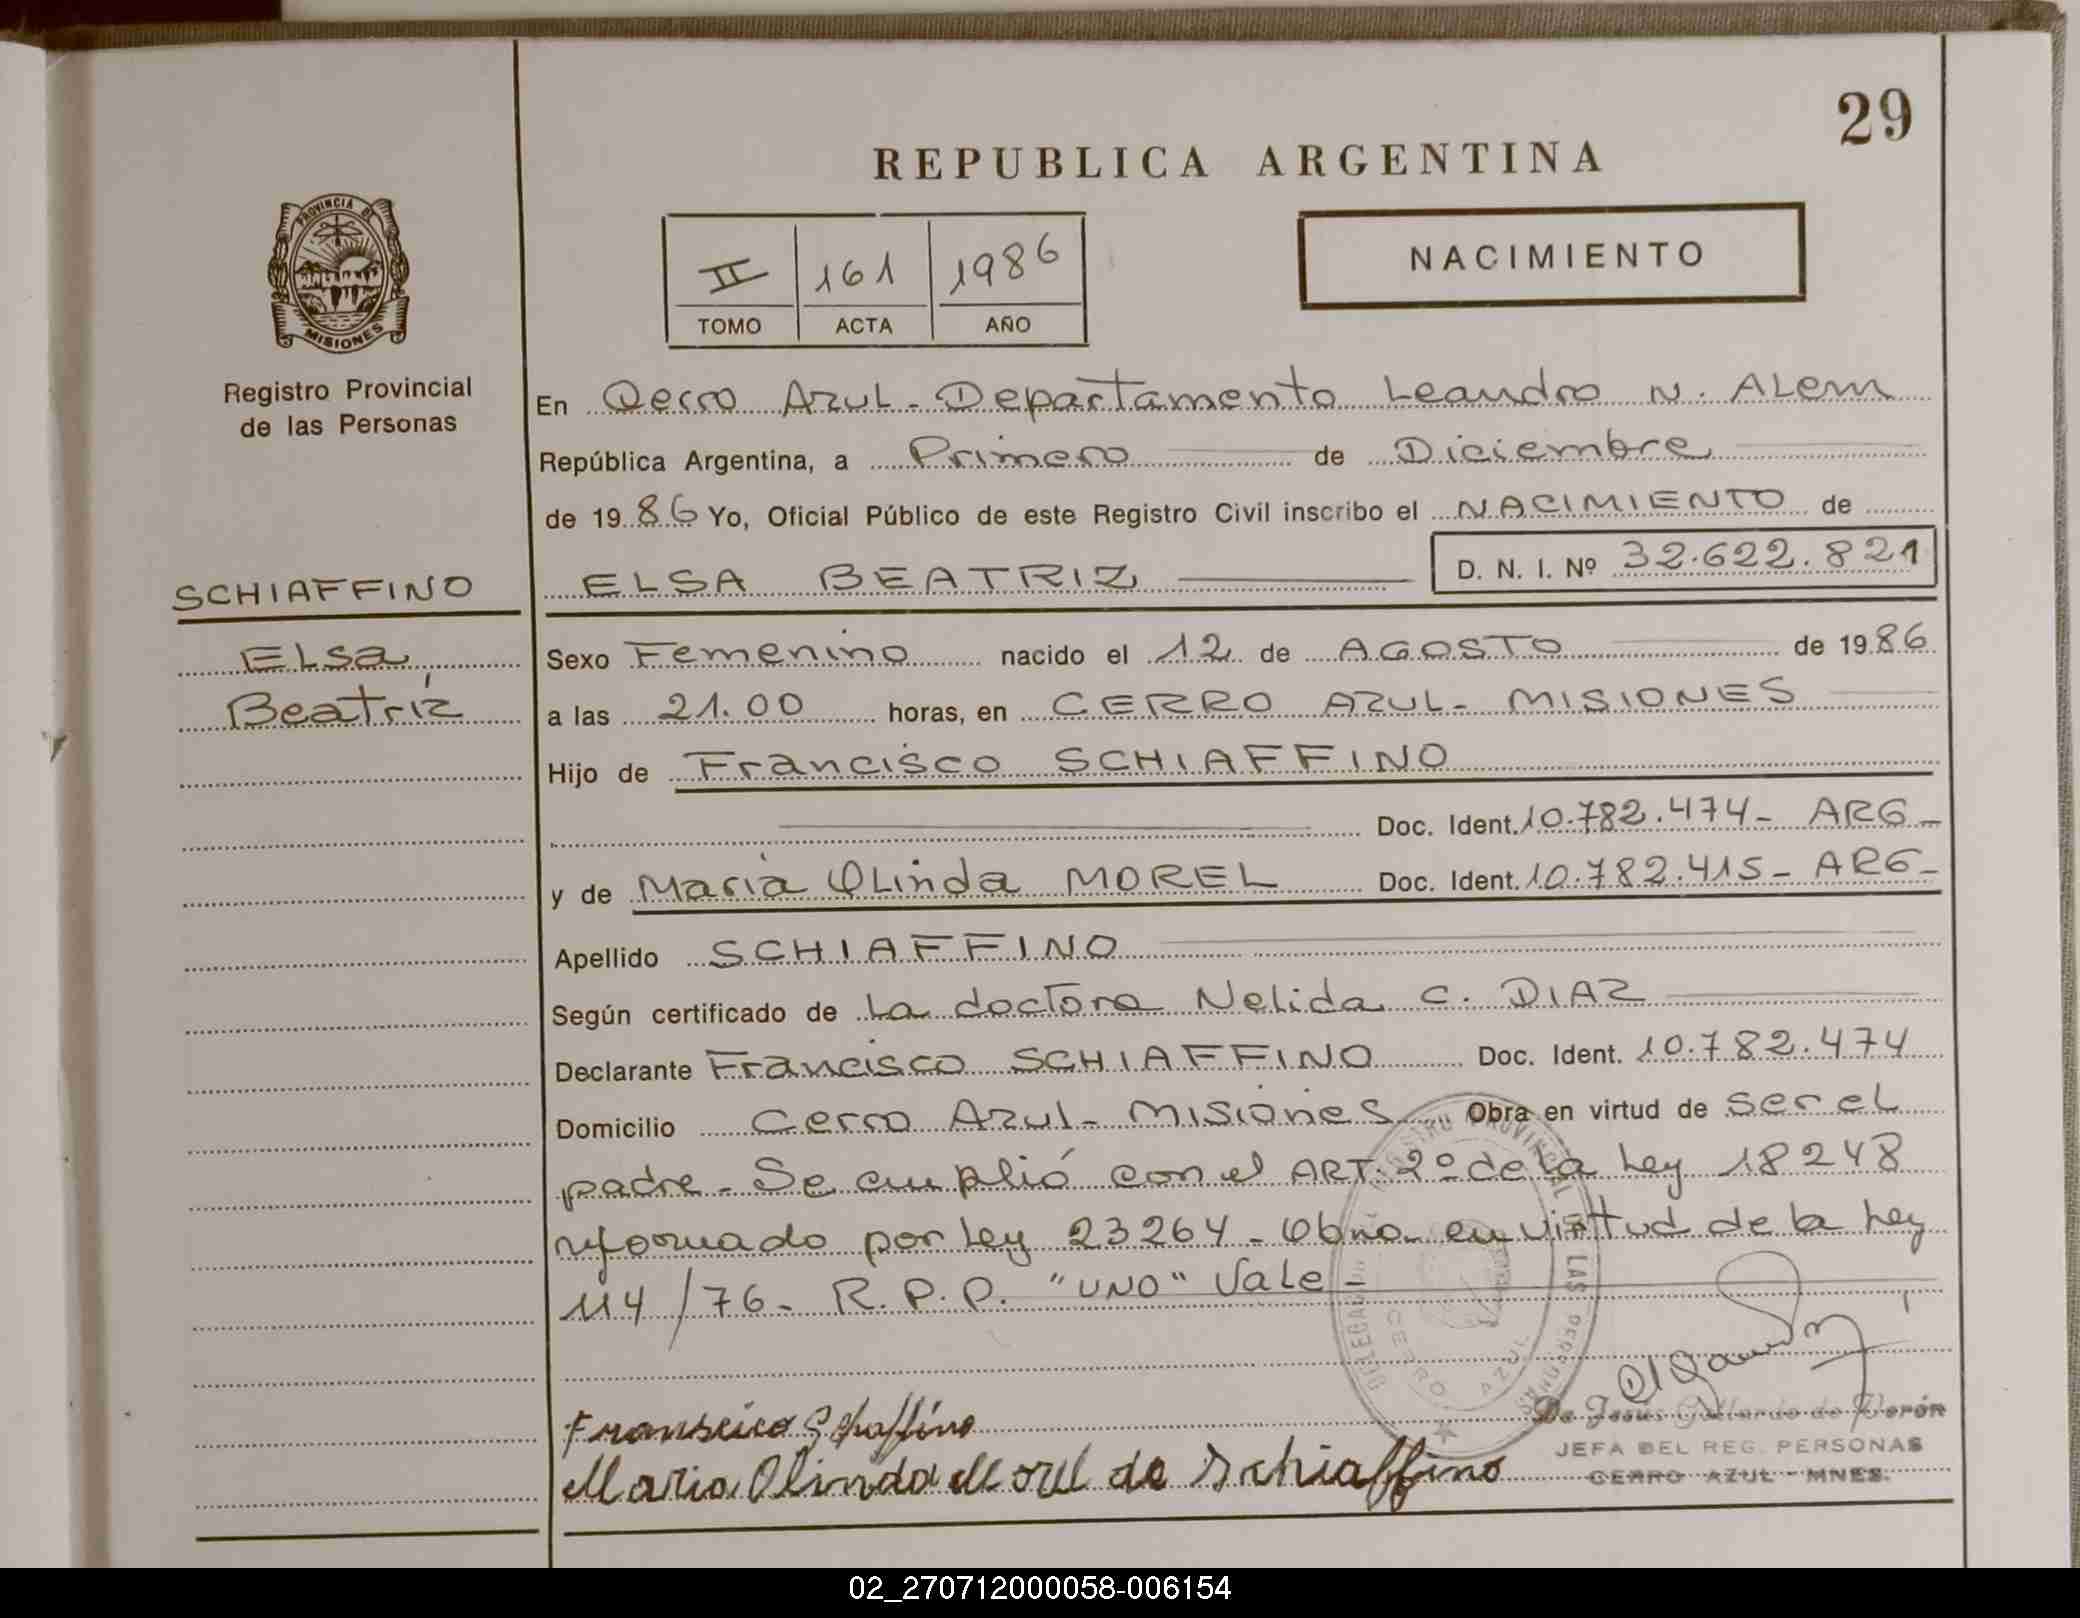 29
REPUBLICA ARGENTINA
PROVINCIA DE
MISIONES
II 161 1986
TOMO ACTA AÑO
NACIMIENTO
Registro Provincial
de las Personas
En Cerro Azul - Departamento Leandro N. Alem
República Argentina, a Primero de Diciembre
de 1986 Yo, Oficial Público de este Registro Civil inscribo el NACIMIENTO de
SCHIAFFINO
ELSA BEATRIZ D. N. I. Nº 32.622.821
Elsa
Sexo Femenino nacido el 12 de AGOSTO de 1986
Beatríz
a las 21.00 horas, en CERRO AZUL - MISIONES
Hijo de Francisco SCHIAFFINO
Doc. Ident. 10.782.474 - ARG -
y de Maria Olinda MOREL Doc. Ident. 10.782.415 - ARG -
Apellido SCHIAFFINO
Según certificado de La doctora Nelida C. DIAZ
Declarante Francisco SCHIAFFINO Doc. Ident. 10.782.474
Domicilio Cerro Azul - Misiones Obra en virtud de ser el
padre - Se cumplió con el ART. 2º de la Ley 18248
reformado por Ley 23264 - Obra en virtud de la Ley
114/76 - R.P.P. "UNO" Vale -
REGISTRO PROVINCIAL DE LAS PERSONAS
DELEGACION
CERRO AZUL
Franscico Schaffino
Maria Olinda Morel de Schiaffino
De Jesús Gallardo de Verón
JEFA DEL REG. PERSONAS
CERRO AZUL - MNES.
02_270712000058-006154